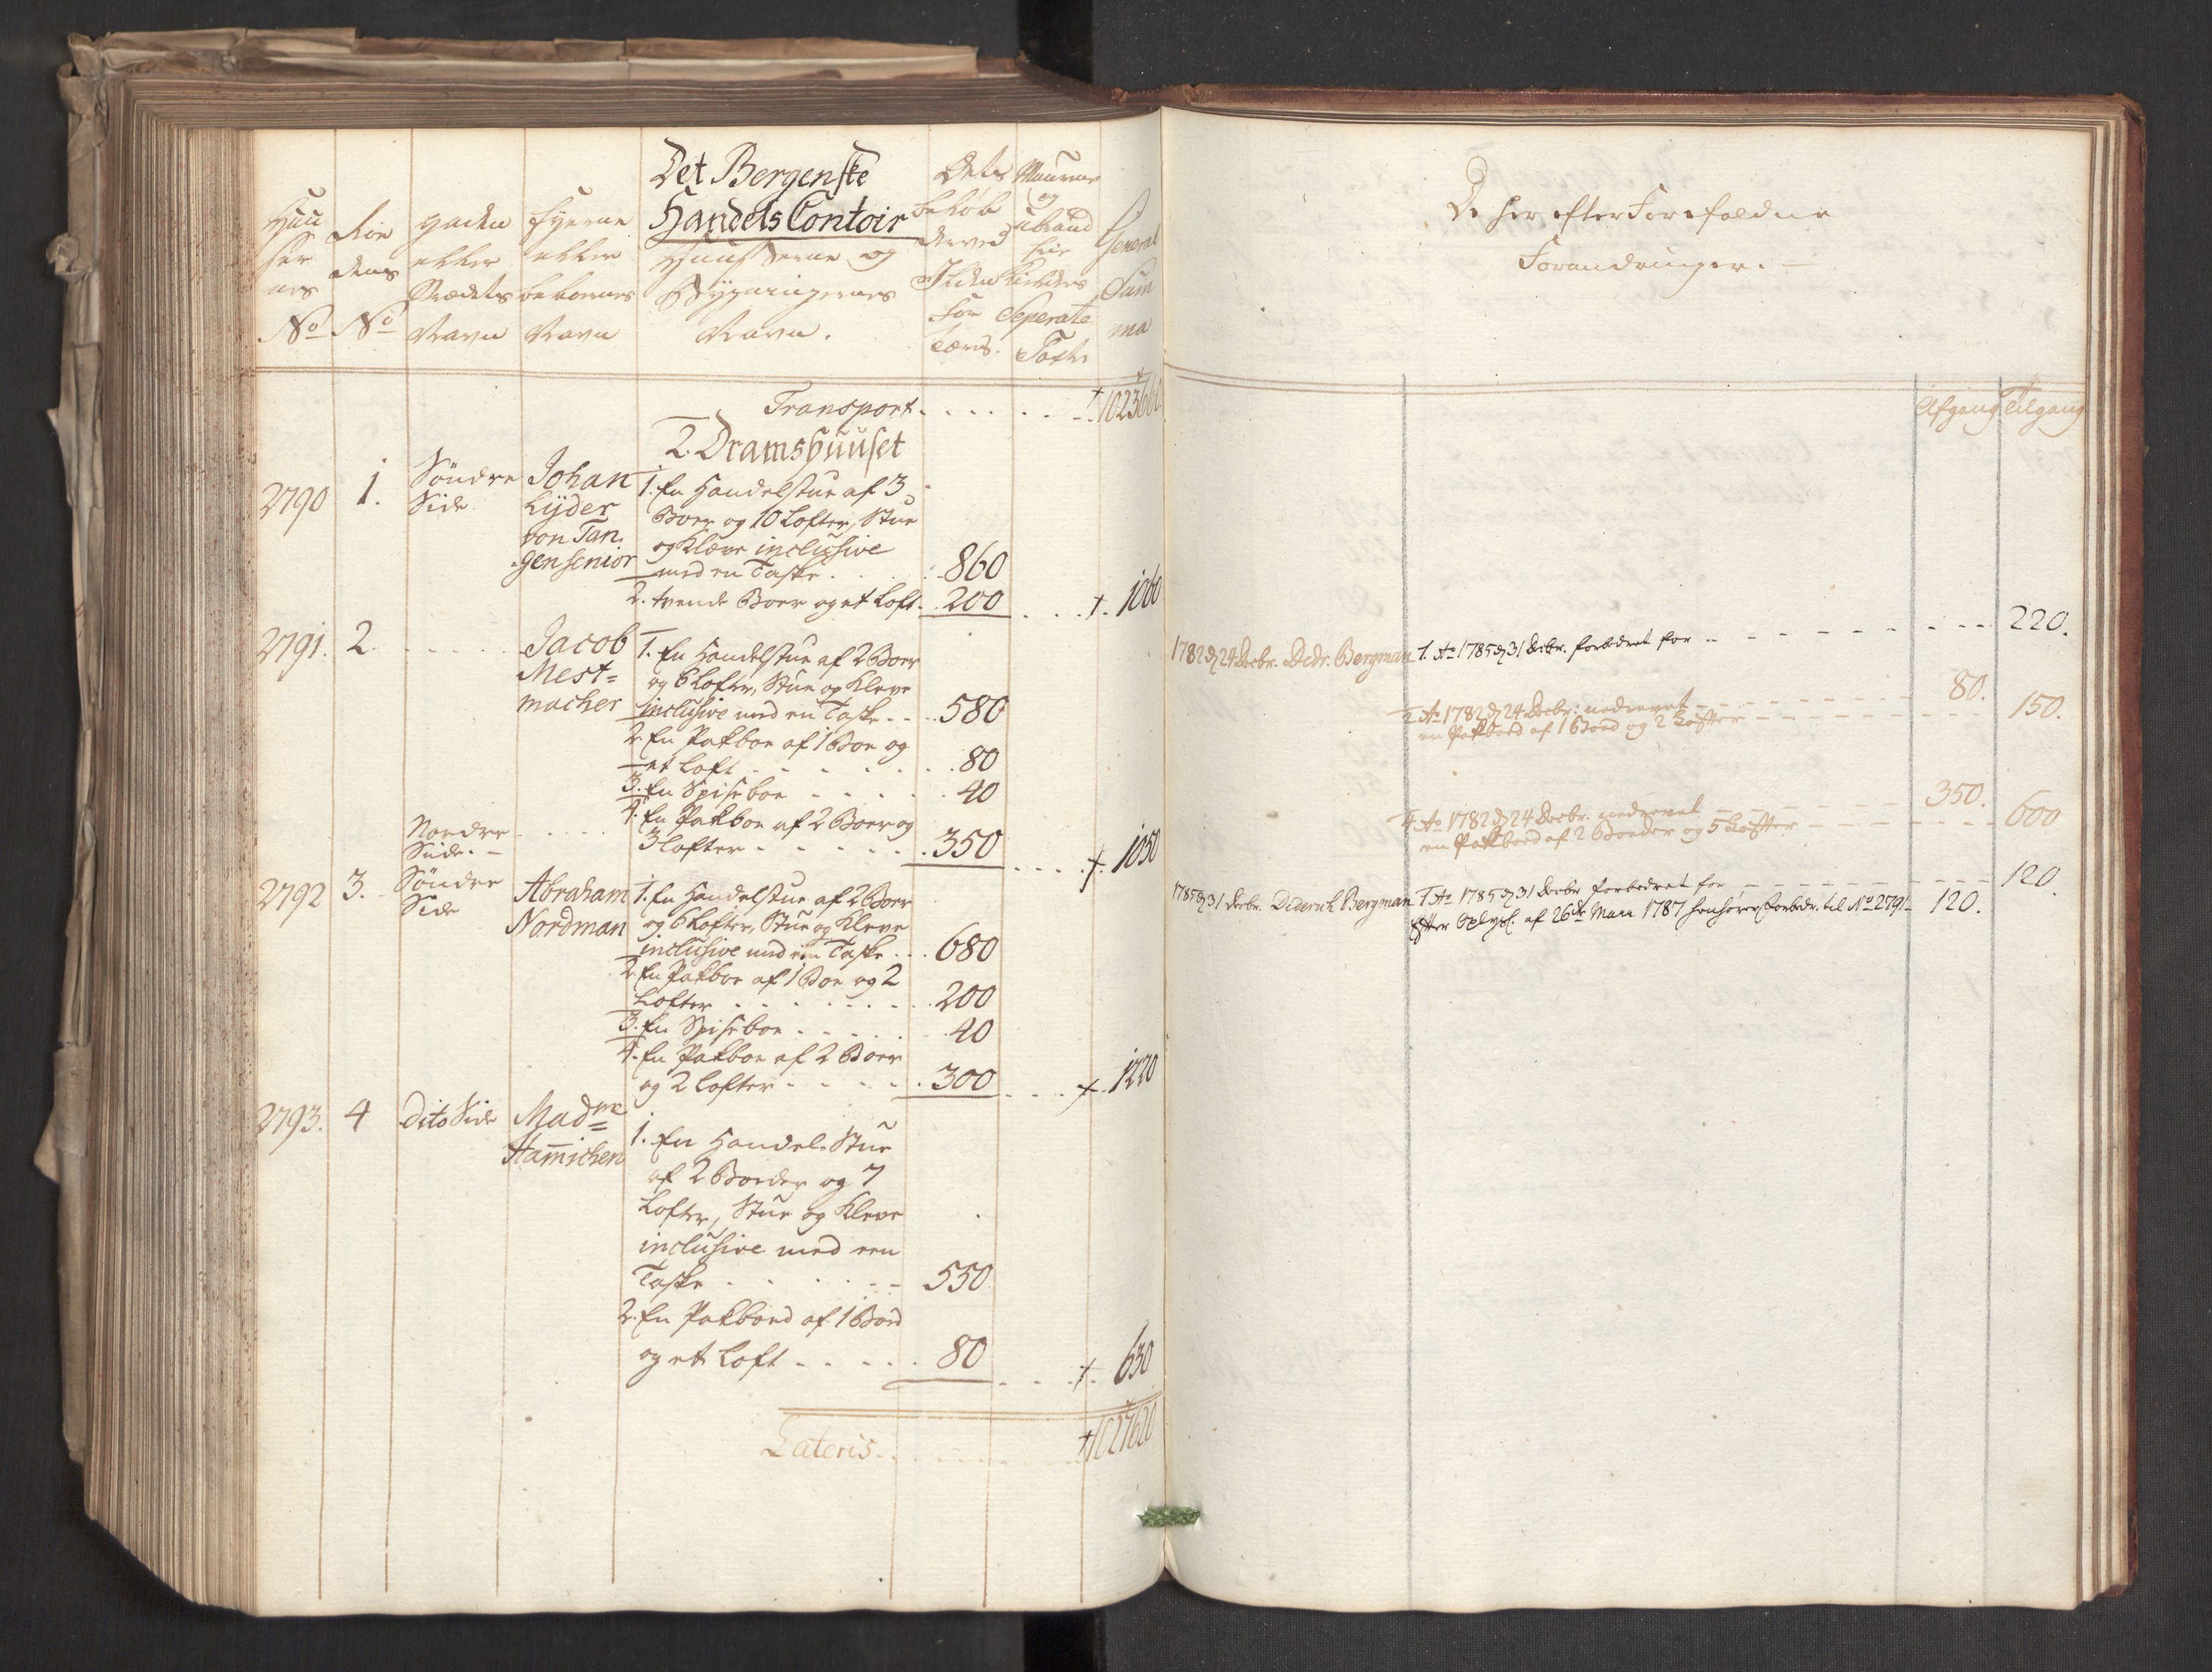 Det Bergenske
Handels Contoir
Huuserne og
Bygningernes
Navn.
Huu
ser
nes
No
No
gaden
eller
Strædets
Navn
Eyerne
eller
beboernes
Navn
Dets
beløb
derved
Ilden
for
og
Seperate
Taxt
General
Sum
ma
Transport . . . . . . 1023660
2. Dramshuuset
2790 1. Søndre Side Johan Lyder von Tangen senior
1. En Handelstue af 3
Boer og 10 Lofter, Stue
og Kleve inclusive
med en Taske . . 860
2. tvende Boer og et Loft . 200 . . . 1060
2791. 2. . . . . . Jacob Mestmacher
1. En Handelstue af 2 Boer
og 6 Lofter, Stue og Kleve
inclusive med en Taske . . 580
2. En Pakboe af 1 Boe og
et Loft . . . . . 80
3. En Spiseboe . . . . 40
Nordre Side. 4. En Pakboe af 2 Boer og
3 Lofter . . . . . 350 . . . 1050
2792 3. Søndre Side Abraham Nordman
1. En Handelstue af 2 Boer
og 6 Lofter, Stue og Kleve
inclusive med een Taske . . 680
2. En Pakboe af 1 Boe og 2
Lofter . . . . . . 200
3. En Spiseboe . . . . . 40
4. En Pakboe af 2 Boer
og 2 Lofter . . . . . 300 . . . 1220
2793. 4 dito Side Madme Ham̄ichen
1. En Handel-Stue
af 2 Boeder og 7
Lofter, Stue og Kleve
inclusive med een
Taske . . . . . . 550
2. En Pakboed af 1 Boed
og et Loft . . . . . 80 . . . 630
Lateris . . . . . . 1027620
De her efter Forefaldne
Forandringer.
Afgang Tilgang
1782 d. 24 Decbr. Didr. Bergman 1. Ao 1785 d. 31 Decbr. forbedret for . . . 220.
2. Ao 1782 d. 24 Decbr. nedrevet . . . 80.
en Pakboed af 1 Boed og 2 Lofter . . . 150.
4. Ao 1782 d. 24 Decbr. nedrevet . . . 350.
en Pakboed af 2 Boeder og 5 Lofter . . . 600
1785 d. 31 Decbr. Diderich Bergman 1. Ao 1785 d. 31 Decbr. forbedret for . . . 120.
Efter af 26de Mart 1787 henhører forbedr. til No 2791 120.